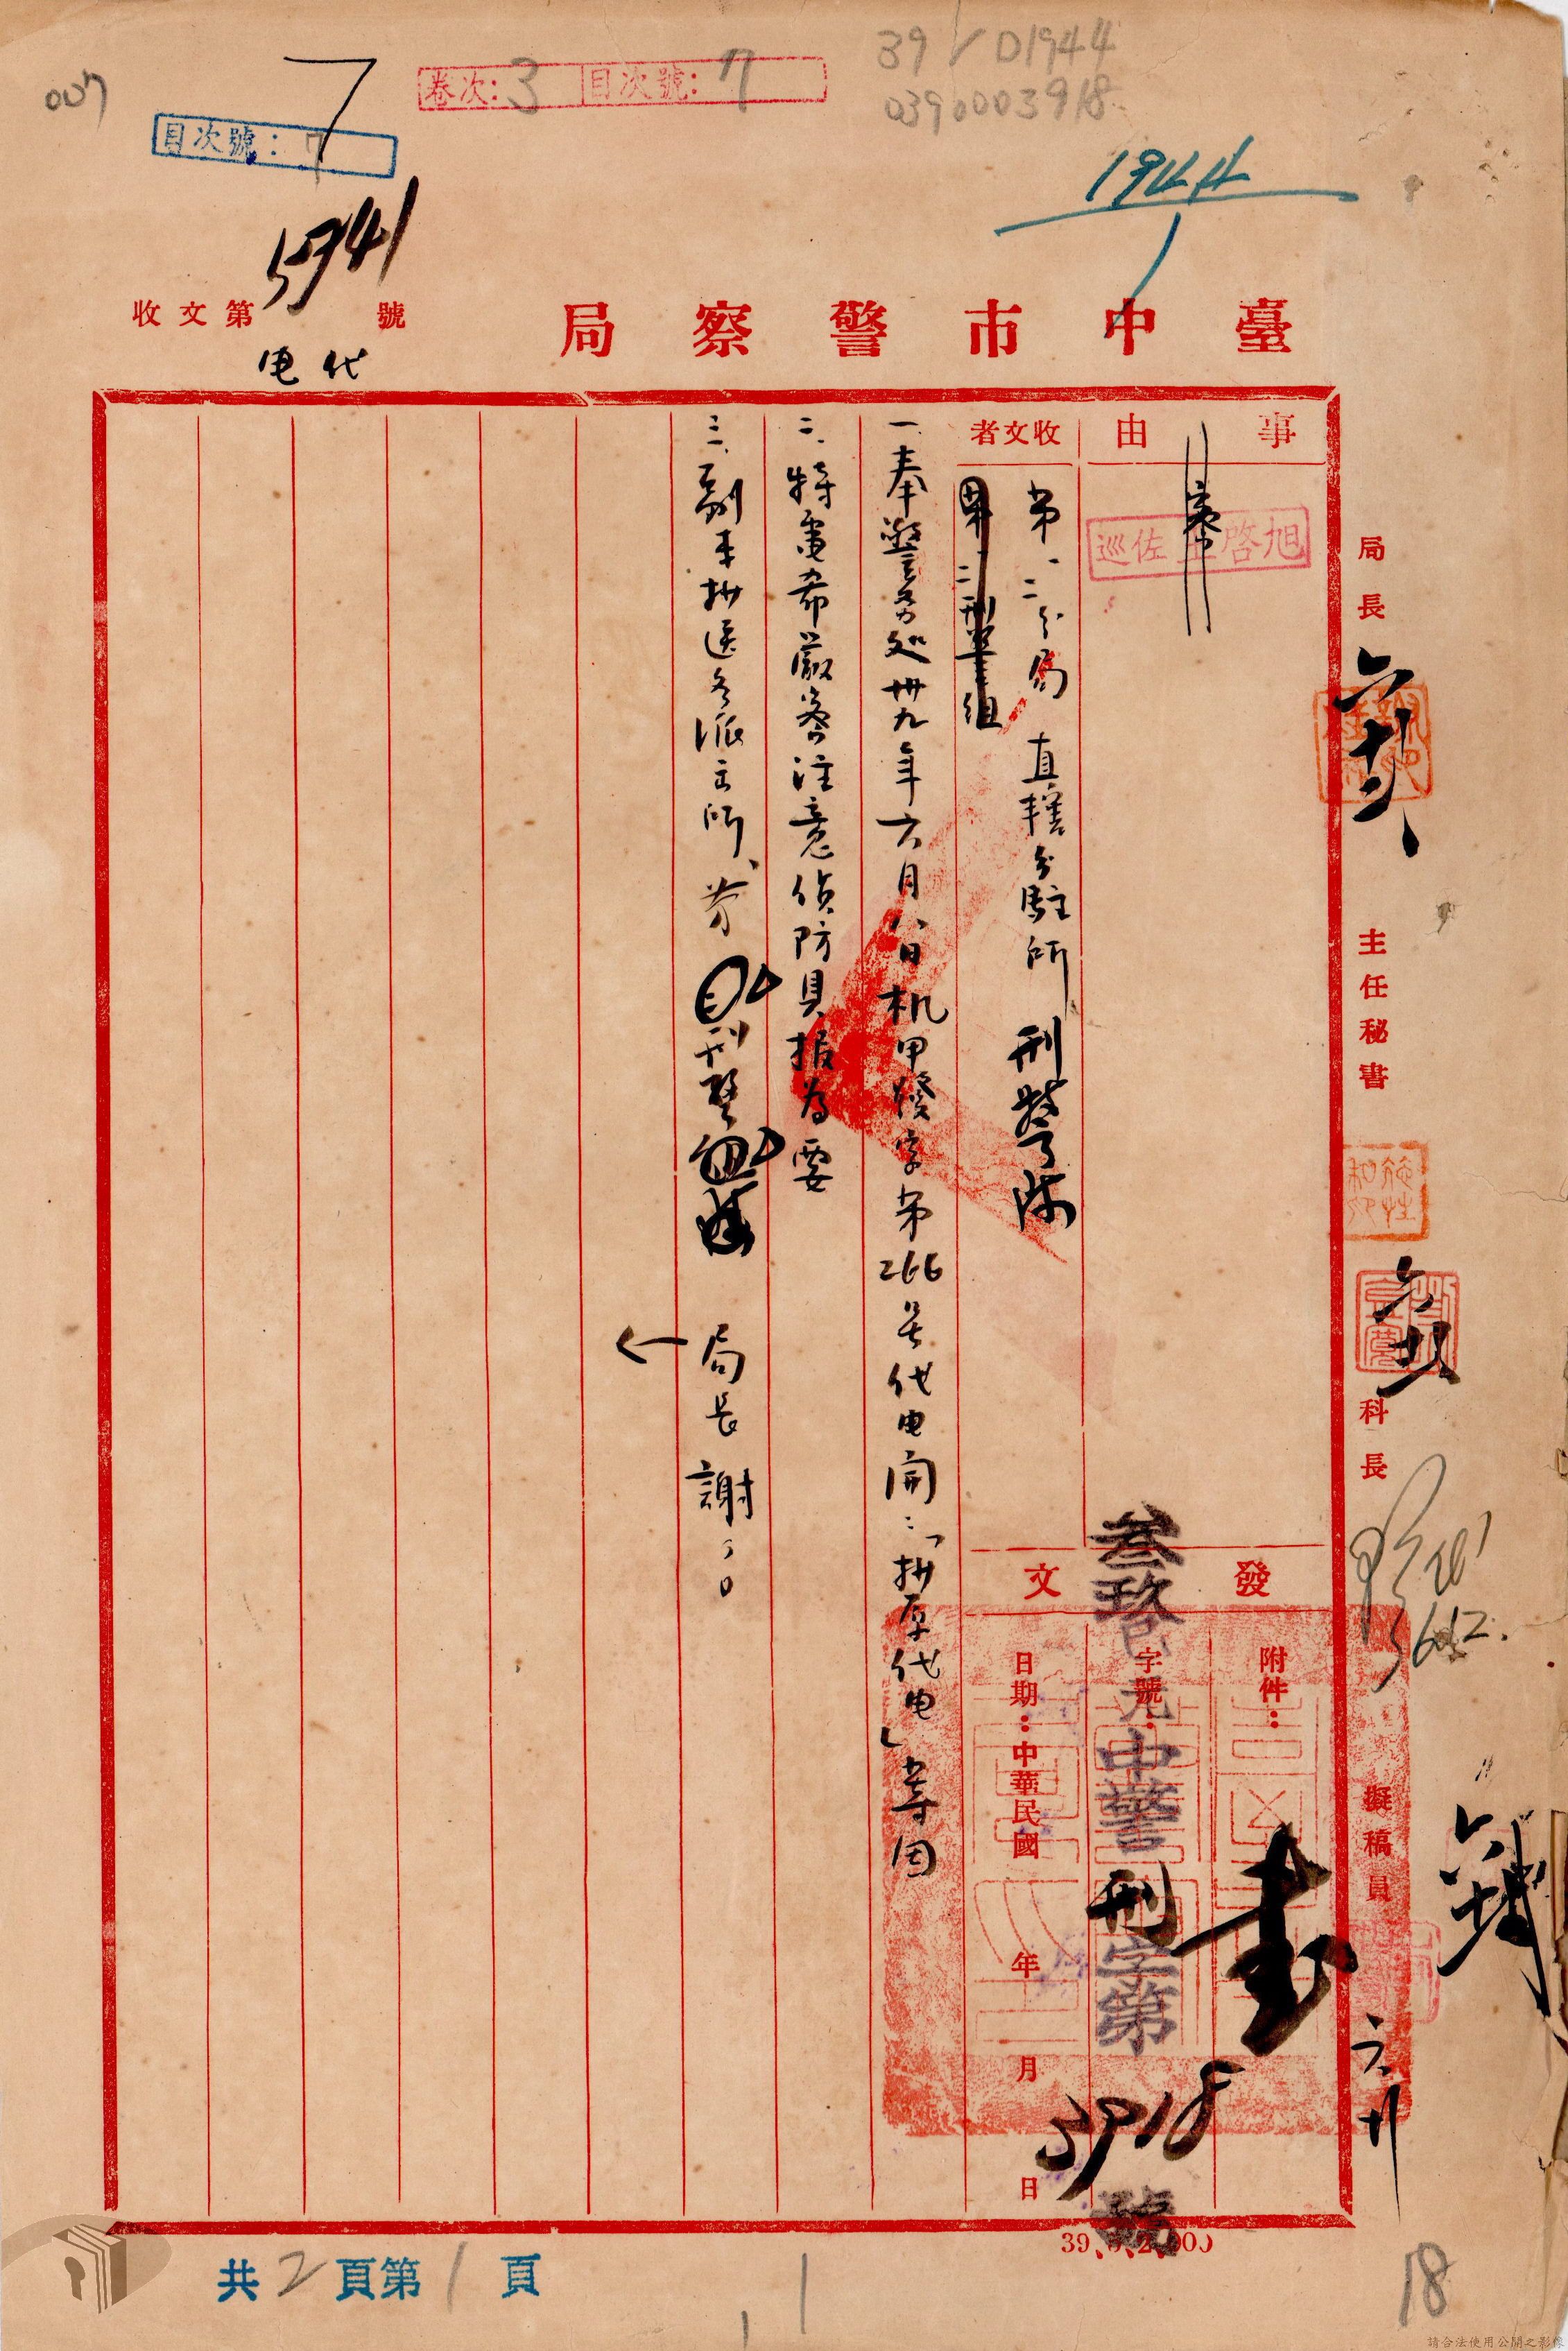 007
7
卷次：3 目次號：7
39 / D1944
0390003918
目次號：7
1944
/
臺中市警察局
收文第5941號
代电
事由
收文者
第一、二分局 直轄分駐所 刑警隊
第一、二刑警組
一、奉警务処卅九年六月八日机甲發字第266号代电開：「抄原代电」等因
二、特電希嚴密注意偵防具报為要
三、副本抄送各派出所、
刑警
局長 謝○○
巡佐王啓旭
發文
附件：
字號：
日期：中華民國 年 月 日
叁玖
中警刑字第3918號
局長
主任秘書
科長
6.12.
擬稿員
共2頁第1頁
18
請合法使用公開之影像